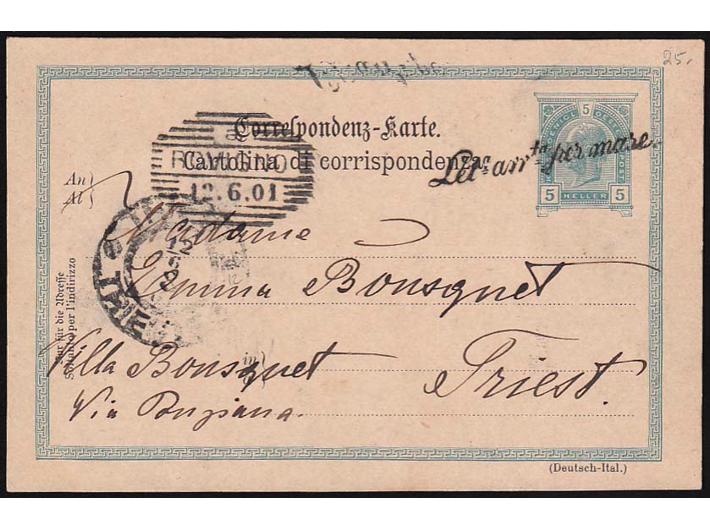 25.
Correspondenz-Karte.
Cartolina di corrispondenza.
5
5 HELLER 5
Lett. arr.ta per mare.
ROVIGNO
12.6.01
An
Al
Madame
Emma Bousquet
Villa Bousquet
Triest.
Via Ponziana.
Nur für die Adresse
Soltanto per l'indirizzo
in
TRIE
(Deutsch-Ital.)